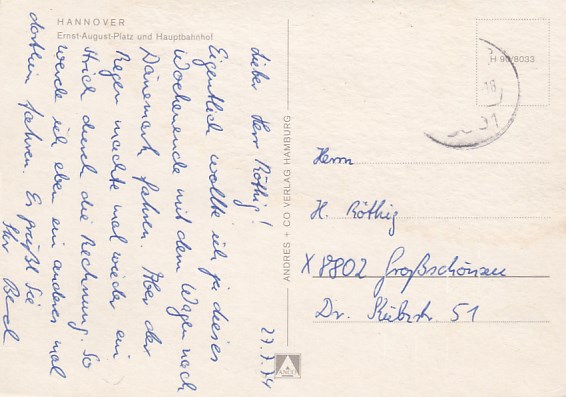 HANNOVER
Ernst-August-Platz und Hauptbahnhof
Lieber Herr Röthig!
Eigentlich wollte ich ja dieses
Wochenende mit dem Wagen nach
Dänemark fahren. Aber der
Regen machte mal wieder ein
Strich durch die Rechnung. So
werde ich eben ein anderes mal
dorthin fahren. Es grüßt Sie
Ihr
27.7.74
ANDRES + CO VERLAG HAMBURG
H 90/8033
Herrn
H. Röthig
X 8802 Großschönau
Dr. Külzstr 51